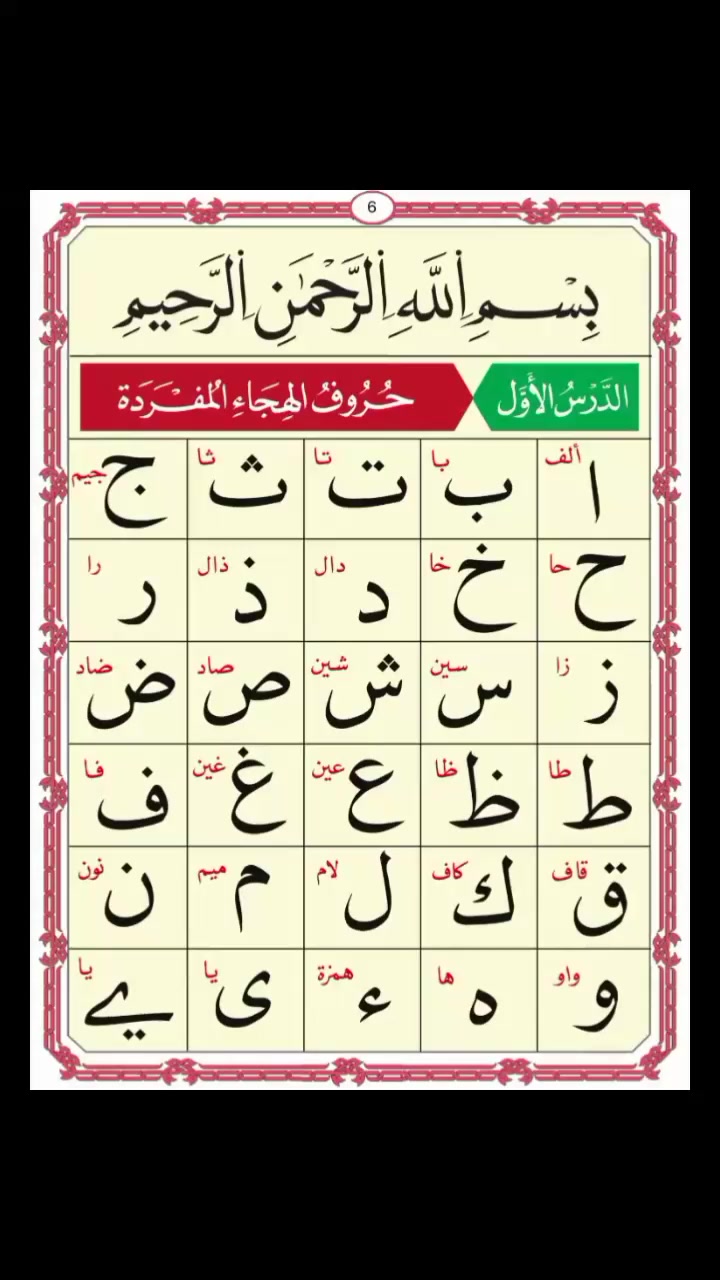 6
بِسْمِ اللَّهِ الرَّحْمَٰنِ الرَّحِيمِ
الدَّرْسُ الأَوَّل حُرُوفُ الهِجَاءِ المُفْرَدَة
ا ألف ب با ت تا ث ثا ج جيم
ح حا خ خا د دال ذ ذال ر را
ز زا س سين ش شين ص صاد ض ضاد
ط طا ظ ظا ع عين غ غين ف فا
ق قاف ك كاف ل لام م ميم ن نون
و واو ه ها ء همزة ى يا ے يا